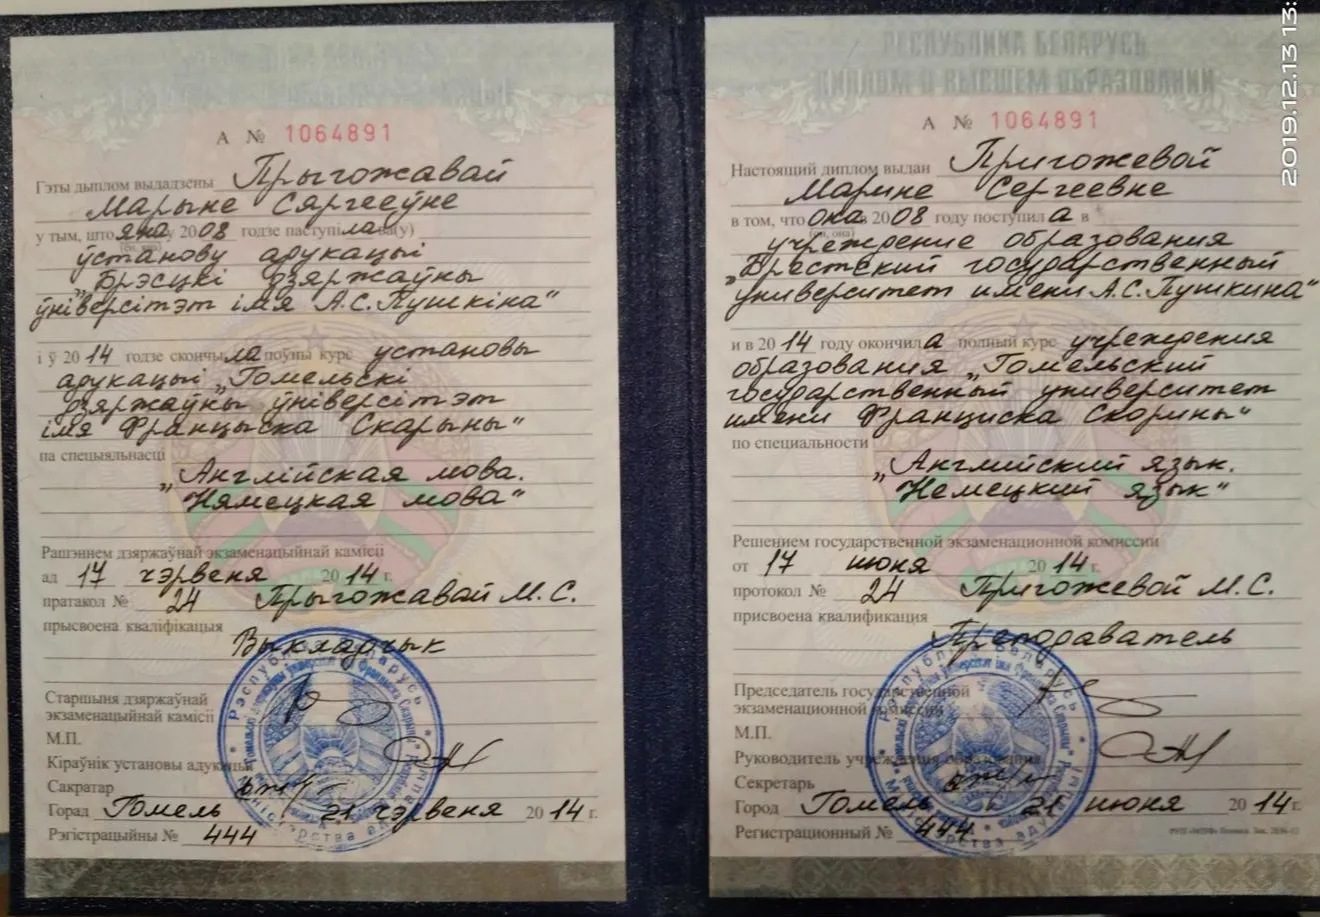 А № 1064891
Гэты дыплом выдадзены Прыгожавай
Марыне Сяргееўне
у тым, што яна у 2008 годзе паступіла ва(у)
(ён, яна)
ўстанову адукацыі
„Брэсцкі дзяржаўны
ўніверсітэт імя А.С.Пушкіна"
і ў 2014 годзе скончыла поўны курс установы
адукацыі „Гомельскі
дзяржаўны ўніверсітэт
імя Францыска Скарыны"
па спецыяльнасці
„Англійская мова.
Нямецкая мова"
Рашэннем дзяржаўнай экзаменацыйнай камісіі
ад 17 чэрвеня 2014 г.
пратакол № 24 Прыгожавай М.С.
прысвоена кваліфікацыя
Выкладчык
Старшыня дзяржаўнай
экзаменацыйнай камісіі
М.П.
Кіраўнік установы адукацыі
Сакратар
Горад Гомель 21 чэрвеня 2014 г.
Рэгістрацыйны № 444
РЕСПУБЛИКА БЕЛАРУСЬ
ДИПЛОМ О ВЫСШЕМ ОБРАЗОВАНИИ
А № 1064891
Настоящий диплом выдан Пригожевой
Марине Сергеевне
в том, что она в 2008 году поступила в
(он, она)
учреждение образования
„Брестский государственный
университет имени А.С.Пушкина"
и в 2014 году окончила полный курс учреждения
образования „Гомельский
государственный университет
имени Франциска Скорины"
по специальности
„Английский язык.
Немецкий язык"
Решением государственной экзаменационной комиссии
от 17 июня 2014 г.
протокол № 24 Пригожевой М.С.
присвоена квалификация
Преподаватель
Председатель государственной
экзаменационной комиссии
М.П.
Руководитель учреждения образования
Секретарь
Город Гомель 21 июня 2014 г.
Регистрационный № 444
2019.12.13 13: